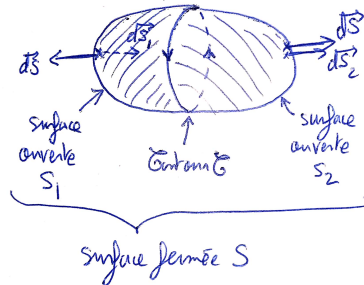 dS⃗
dS⃗₁
dS⃗
dS⃗₂
surface
ouverte
S₁
Contour C
surface
ouverte
S₂
surface fermée S